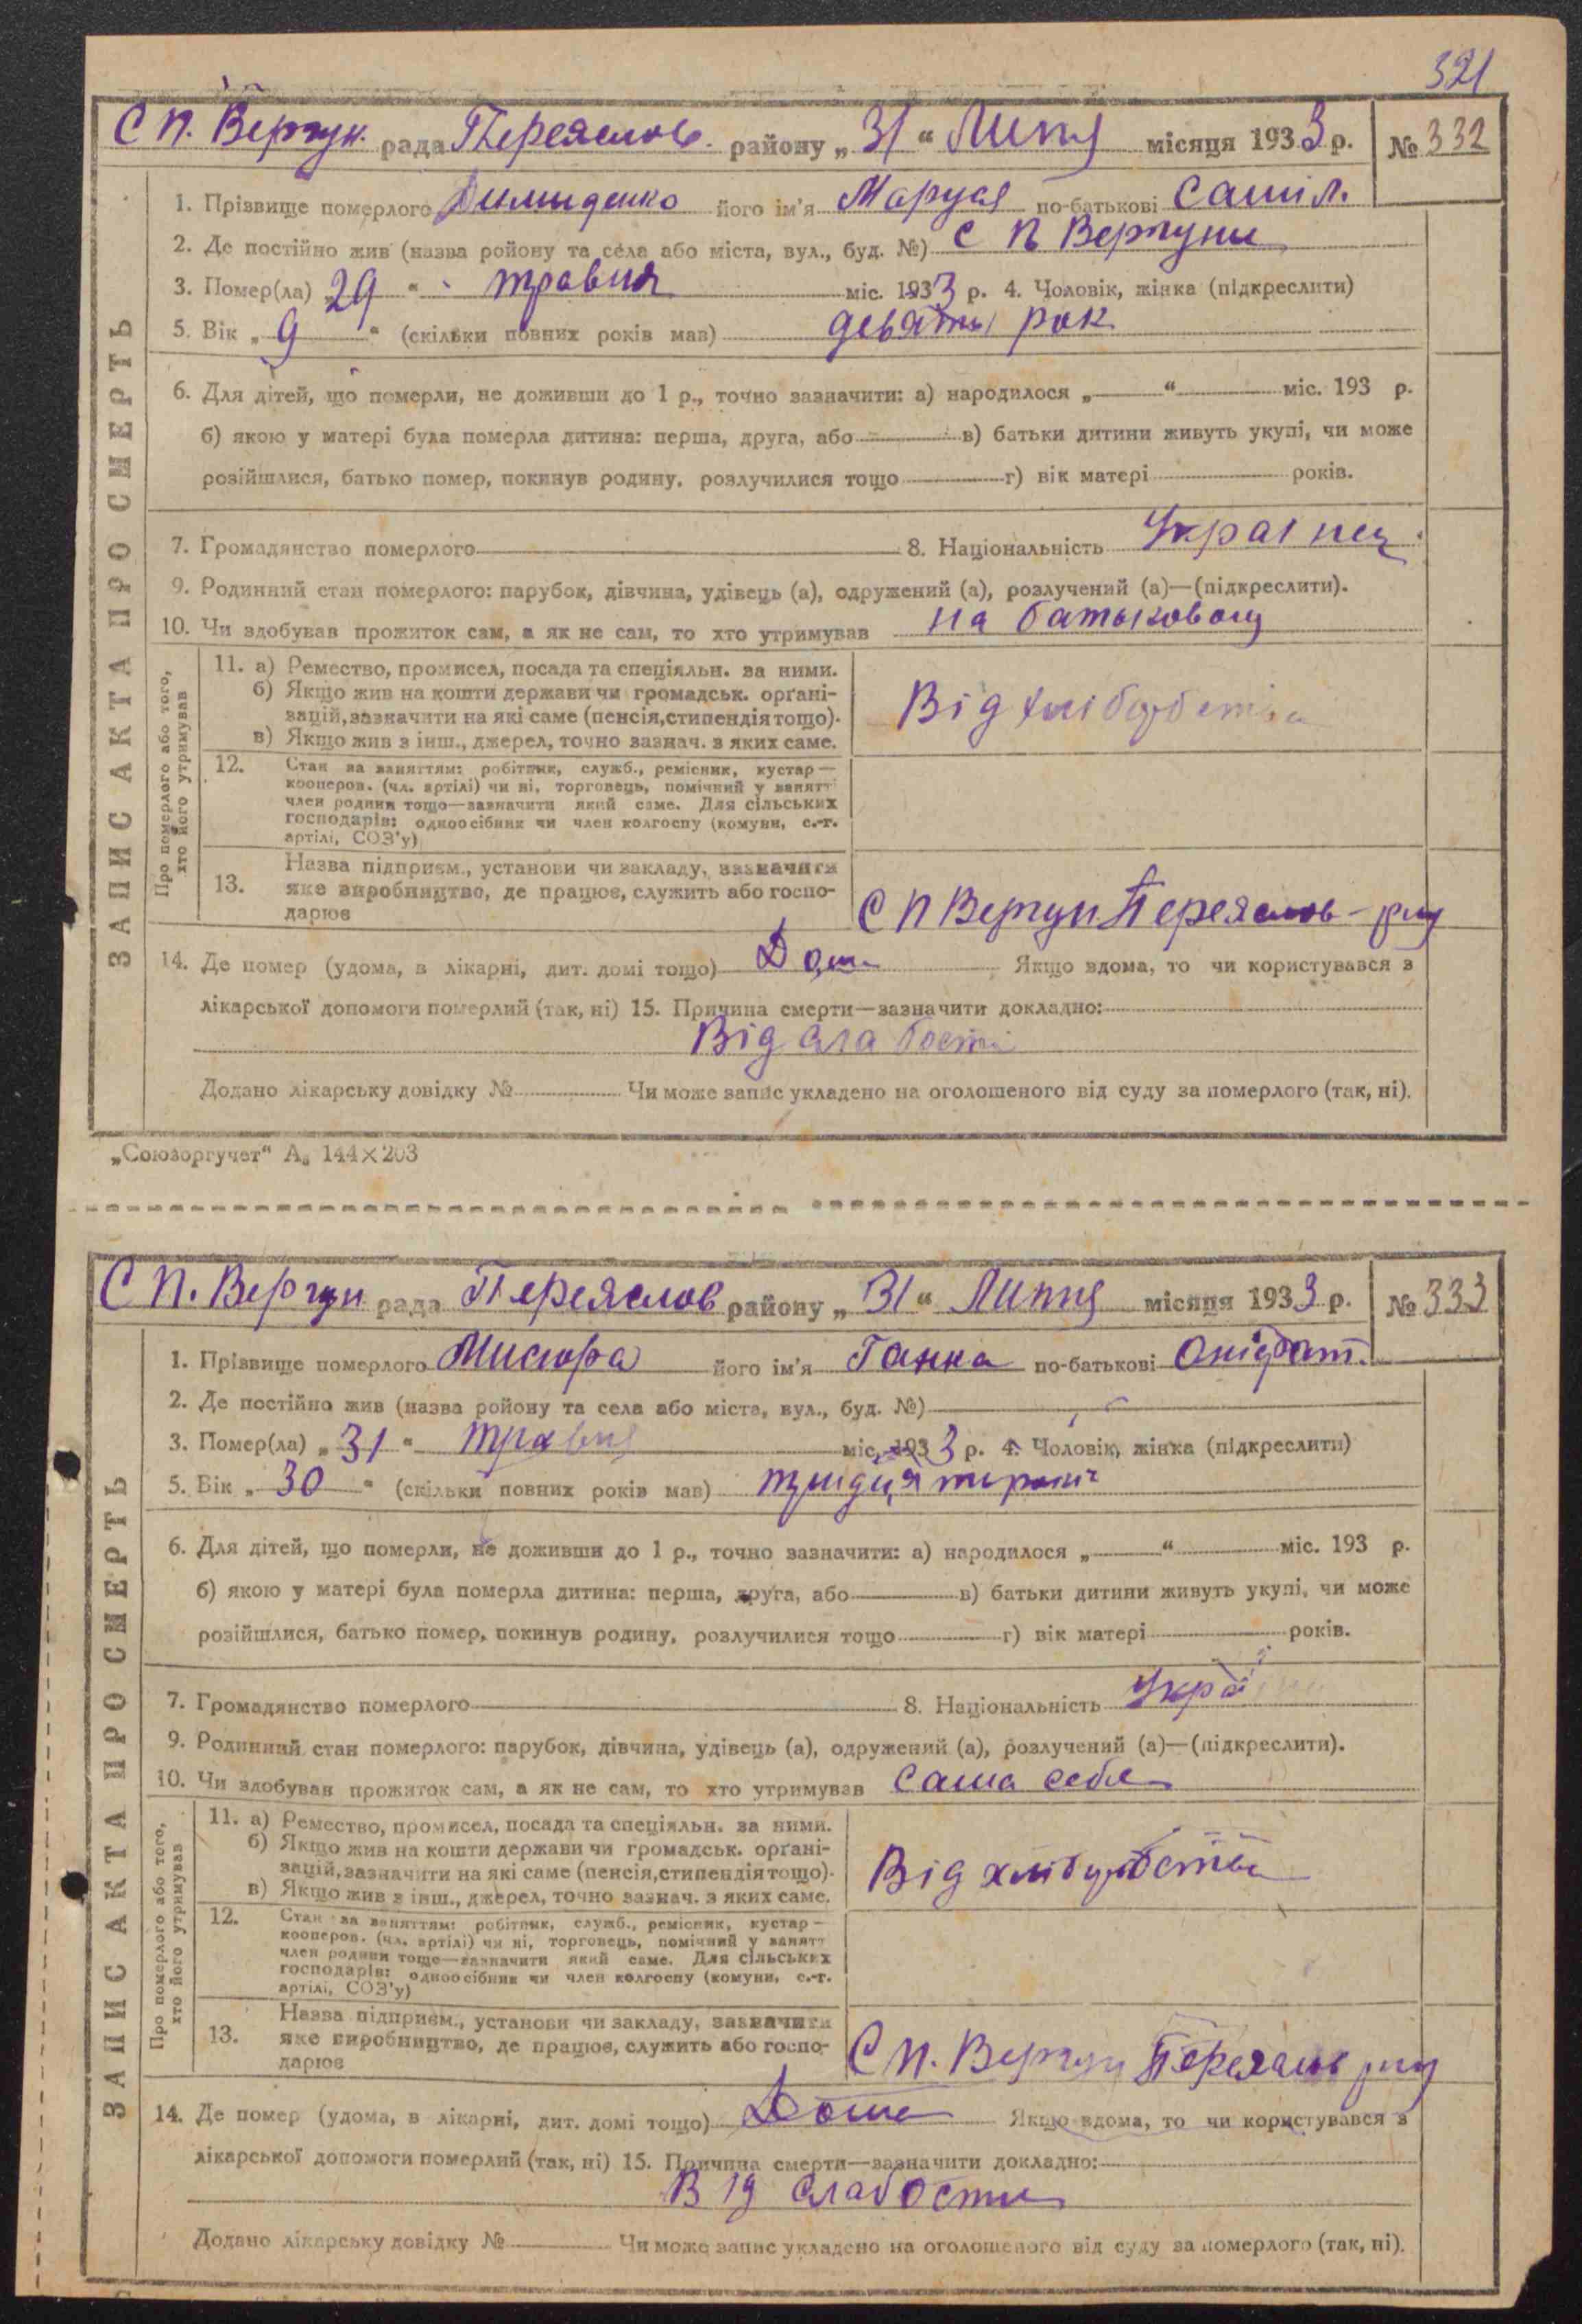 321
С П. Вергун. рада Переяслов. району „31“ Липня місяця 1933 р. № 332
1. Прізвище померлого Димиденко його ім'я Маруся по-батькові Самійл.
2. Де постійно жив (назва ройону та села або міста, вул., буд. №) С П Вергуни
3. Помер(ла) „29“ травня міс. 1933 р. 4. Чоловік, жінка (підкреслити)
5. Вік „9“ (скільки повних років мав) девять рок
6. Для дітей, що померли, не доживши до 1 р., точно зазначити: а) народилося „ “ міс. 193 р.
б) якою у матері була померла дитина: перша, друга, або в) батьки дитини живуть укупі, чи може
розійшлися, батько помер, покинув родину, розлучилися тощо г) вік матері років.
7. Громадянство померлого 8. Національність Українец
9. Родинний стан померлого: парубок, дівчина, удівець (а), одружений (а), розлучений (а)—(підкреслити).
10. Чи здобував прожиток сам, а як не сам, то хто утримував на батьковому
ЗАПИС АКТА ПРО СМЕРТЬ
Про померлого або того, хто його утримував
11. а) Ремество, промисел, посада та спеціяльн. за ними.
б) Якщо жив на кошти держави чи громадськ. орґані-
зацій, зазначити на які саме (пенсія, стипендія тощо).
в) Якщо жив з інш., джерел, точно зазнач. з яких саме.
Від хліборобства
12. Стан за заняттям: робітник, служб., ремісник, кустар—
кооперов. (чл. артілі) чи ні, торговець, помічний у занятт
член родини тощо—зазначити який саме. Для сільських
господарів: одноосібник чи член колгоспу (комуни, с.-г.
артілі, СОЗ'у)
13. Назва підприєм., установи чи закладу, зазначити
яке виробництво, де працює, служить або госпо-
дарює
С П Вергун Переяслов-рну
14. Де помер (удома, в лікарні, дит. домі тощо) Дома Якщо вдома, то чи користувався з
лікарської допомоги померлий (так, ні) 15. Причина смерти—зазначити докладно:
Від слабости
Додано лікарську довідку № Чи може запис укладено на оголошеного від суду за померлого (так, ні).
„Союзоргучет“ А₅ 144×203
С П. Вергун рада Переяслов району „31“ Липня місяця 1933 р. № 333
1. Прізвище померлого Мисюра його ім'я Ганна по-батькові Онідрат.
2. Де постійно жив (назва ройону та села або міста, вул., буд. №)
3. Помер(ла) „31“ травня міс. 1933 р. 4. Чоловік, жінка (підкреслити)
5. Вік „30“ (скільки повних років мав) тридцять рокив
6. Для дітей, що померли, не доживши до 1 р., точно зазначити: а) народилося „ “ міс. 193 р.
б) якою у матері була померла дитина: перша, друга, або в) батьки дитини живуть укупі, чи може
розійшлися, батько помер, покинув родину, розлучилися тощо г) вік матері років.
7. Громадянство померлого 8. Національність Україн
9. Родинний стан померлого: парубок, дівчина, удівець (а), одружений (а), розлучений (а)—(підкреслити).
10. Чи здобував прожиток сам, а як не сам, то хто утримував Сама себе
ЗАПИС АКТА ПРО СМЕРТЬ
Про померлого або того, хто його утримував
11. а) Ремество, промисел, посада та спеціяльн. за ними.
б) Якщо жив на кошти держави чи громадськ. орґані-
зацій, зазначити на які саме (пенсія, стипендія тощо).
в) Якщо жив з інш., джерел, точно зазнач. з яких саме.
Від хліборобства
12. Стан за заняттям: робітник, служб., ремісник, кустар—
кооперов. (чл. артілі) чи ні, торговець, помічний у занятт
член родини тощо—зазначити який саме. Для сільських
господарів: одноосібник чи член колгоспу (комуни, с.-г.
артілі, СОЗ'у)
13. Назва підприєм., установи чи закладу, зазначити
яке виробництво, де працює, служить або госпо-
дарює
С П. Вергун Переяслов рну
14. Де помер (удома, в лікарні, дит. домі тощо) Дома Якщо вдома, то чи користувався з
лікарської допомоги померлий (так, ні) 15. Причина смерти—зазначити докладно:
Від слабости
Додано лікарську довідку № Чи може запис укладено на оголошеного від суду за померлого (так, ні).